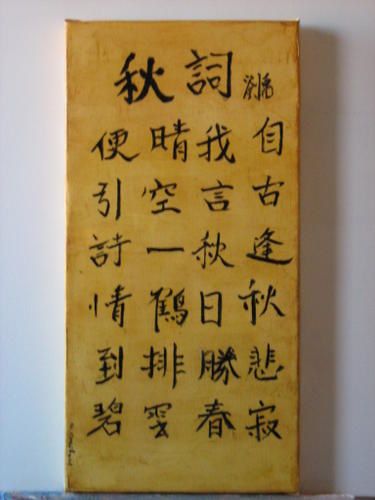 秋詞
劉禹
自古逢秋悲寂
我言秋日勝春
晴空一鶴排雲
便引詩情到碧